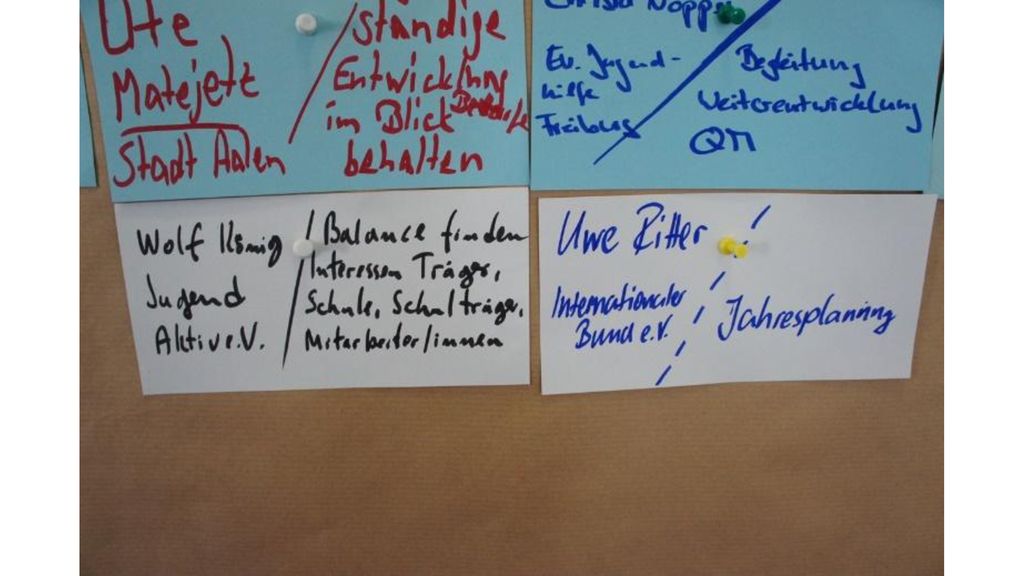 Ute
Matejetz
Stadt Aalen
ständige
Entwicklung
im Blick Bedarfe
behalten
Ev. Jugend-
hilfe
Freiburg
Begleitung
Weiterentwicklung
QM
Wolf König
Jugend
Aktiv e.V.
Balance finden
Interessen Träger,
Schule, Schulträger,
Mitarbeiter/innen
Uwe Ritter
Internationaler
Bund e.V.
Jahresplanung